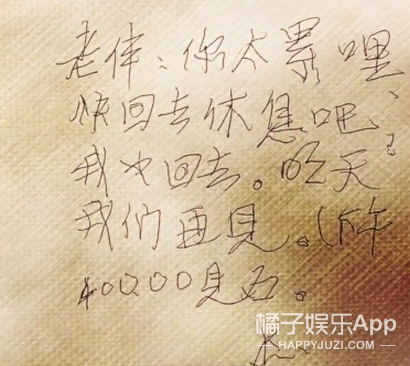 老伴：你太累哩、
快回去休息吧！
我也回去。明天
我们再见。（下午
400.00见面。
橘子娱乐App
HAPPYJUZI.COM